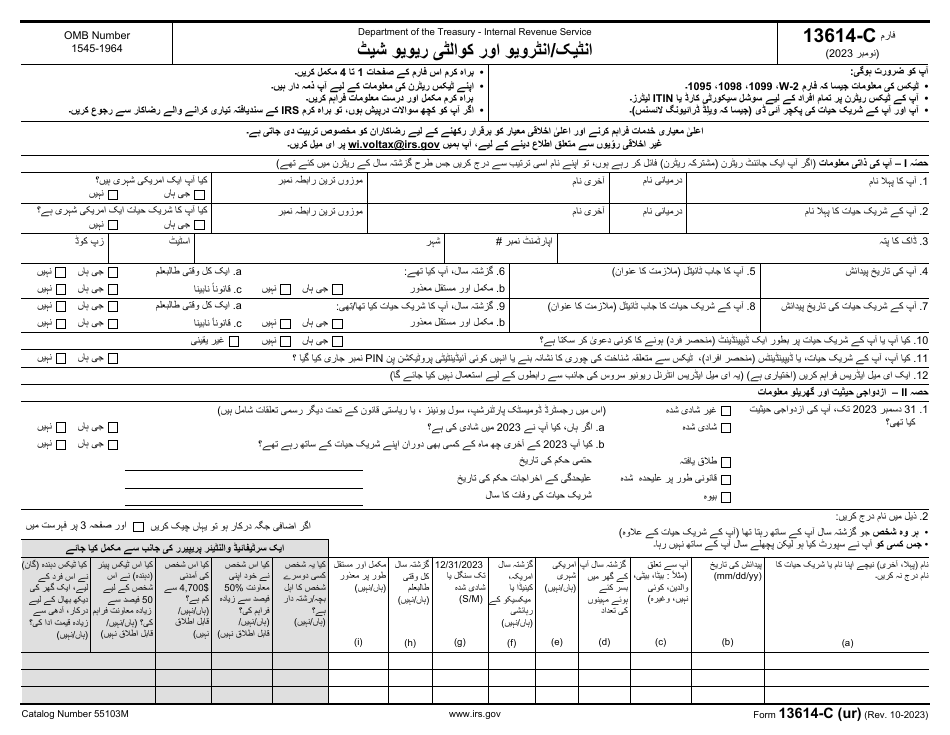 فارم 13614-C
(نومبر 2023)
Department of the Treasury - Internal Revenue Service
انٹیک/انٹرویو اور کوالٹی ریویو شیٹ
OMB Number
1545-1964
آپ کو ضرورت ہوگی:
• ٹیکس کی معلومات جیسا کہ فارم W-2، 1099، 1098، 1095.
• آپ کے ٹیکس ریٹرن پر تمام افراد کے لیے سوشل سیکورٹی کارڈ یا ITIN لیٹرز.
• آپ اور آپ کے شریک حیات کی پکچر آئی ڈی (جیسا کہ ویلڈ ڈرائیونگ لائسنس).
• براہ کرم اس فارم کے صفحات 1 تا 4 مکمل کریں.
• اپنے ٹیکس ریٹرن کی معلومات کے لیے آپ ذمہ دار ہیں.
براہ کرم مکمل اور درست معلومات فراہم کریں.
• اگر آپ کو کچھ سوالات درپیش ہوں، تو براہ کرم IRS کے سندیافتہ تیاری کرانے والے رضاکار سے رجوع کریں.
اعلیٰ معیاری خدمات فراہم کرنے اور اعلیٰ اخلاقی معیار کو برقرار رکھنے کے لیے رضاکاران کو مخصوص تربیت دی جاتی ہے.
غیر اخلاقی رؤیوں سے متعلق اطلاع دینے کے لیے، آپ ہمیں wi.voltax@irs.gov پر ای میل کریں.
حصہ I – آپ کی ذاتی معلومات (اگر آپ ایک جائنٹ ریٹرن (مشترکہ ریٹرن) فائل کر رہے ہوں، تو اپنے نام اسی ترتیب سے درج کریں جس طرح گزشتہ سال کے ریٹرن میں کئے تھے)
1. آپ کا پہلا نام
درمیانی نام
آخری نام
موزوں ترین رابطہ نمبر
کیا آپ ایک امریکی شہری ہیں؟
جی ہاں نہیں
2. آپ کے شریک حیات کا پہلا نام
درمیانی نام
آخری نام
موزوں ترین رابطہ نمبر
کیا آپ کا شریک حیات ایک امریکی شہری ہے؟
جی ہاں نہیں
3. ڈاک کا پتہ
اپارٹمنٹ نمبر #
شہر
اسٹیٹ
زپ کوڈ
4. آپ کی تاریخ پیدائش
5. آپ کا جاب ٹائیٹل (ملازمت کا عنوان)
6. گزشتہ سال، آپ کیا تھے:
a. ایک کل وقتی طالبعلم جی ہاں نہیں
b. مکمل اور مستقل معذور جی ہاں نہیں
c. قانوناً نابینا جی ہاں نہیں
7. آپ کے شریک حیات کی تاریخ پیدائش
8. آپ کے شریک حیات کا جاب ٹائیٹل (ملازمت کا عنوان)
9. گزشتہ سال، آپ کا شریک حیات کیا تھا/تھی:
a. ایک کل وقتی طالبعلم جی ہاں نہیں
b. مکمل اور مستقل معذور جی ہاں نہیں
c. قانوناً نابینا جی ہاں نہیں
10. کیا آپ یا آپ کے شریک حیات پر بطور ایک ڈیپینڈینٹ (منحصر فرد) ہونے کا کوئی دعویٰ کر سکتا ہے؟ جی ہاں نہیں غیر یقینی
11. کیا آپ، آپ کے شریک حیات، یا ڈیپینڈینٹس (منحصر افراد)، ٹیکس سے متعلقہ شناخت کی چوری کا نشانہ بنے یا انہیں کوئی آئیڈینٹیٹی پروٹیکشن پن PIN نمبر جاری کیا گیا ؟ جی ہاں نہیں
12. ایک ای میل ایڈریس فراہم کریں (اختیاری ہے) (یہ ای میل ایڈریس انٹرنل ریونیو سروس کی جانب سے رابطوں کے لیے استعمال نہیں کیا جائے گا)
حصہ II – ازدواجی حیثیت اور گھریلو معلومات
1. 31 دسمبر 2023 تک، آپ کی ازدواجی حیثیت
کیا تھی؟
غیر شادی شدہ (اس میں رجسٹرڈ ڈومیسٹک پارٹنرشپ، سول یونینز ، یا ریاستی قانون کے تحت دیگر رسمی تعلقات شامل ہیں)
شادی شدہ a. اگر ہاں، کیا آپ نے 2023 میں شادی کی ہے؟ جی ہاں نہیں
b. کیا آپ 2023 کے آخری چھ ماہ کے کسی بھی دوران اپنے شریک حیات کے ساتھ رہے تھے؟ جی ہاں نہیں
طلاق یافتہ حتمی حکم کی تاریخ
قانونی طور پر علیحدہ شدہ علیحدگی کے اخراجات حکم کی تاریخ
بیوہ شریک حیات کی وفات کا سال
2. ذیل میں نام درج کریں:
• ہر وہ شخص جو گزشتہ سال آپ کے ساتھ رہتا تھا (آپ کے شریک حیات کے علاوہ)
• جس کسی کو آپ نے سپورٹ کیا ہو لیکن پچھلے سال آپ کے ساتھ نہیں رہا.
اگر اضافی جگہ درکار ہو تو یہاں چیک کریں اور صفحہ 3 پر فہرست میں
ایک سرٹیفائیڈ والنٹیئر پریپیرر کی جانب سے مکمل کیا جائے
نام (پہلا، آخری) نیچے اپنا نام یا شریک حیات کا
نام درج نہ کریں.
(a)
پیدائش کی تاریخ
(mm/dd/yy)
(b)
آپ سے تعلق
(مثلاً : بیٹا، بیٹی،
والدین، کوئی
نہیں، وغیرہ)
(c)
گزشتہ سال آپ
کے گھر میں
بسر کئے
ہوئے مہینوں
کی تعداد
(d)
امریکی
شہری
(ہاں/نہیں)
(e)
گزشتہ سال
امریکہ،
کینیڈا یا
میکسیکو کے
رہائشی
(ہاں/نہیں)
(f)
12/31/2023
تک سنگل یا
شادی شدہ
(S/M)
(g)
گزشتہ سال
کل وقتی
طالبعلم
(ہاں/نہیں)
(h)
مکمل اور مستقل
طور پر معذور
(ہاں/نہیں)
(i)
کیا یہ شخص
کسی دوسرے
شخص کا اہل
بچہ/رشتہ دار
ہے؟
(ہاں/نہیں)
کیا اس شخص
نے خود اپنی
معاونت 50%
فیصد سے زیادہ
فراہم کی؟
(ہاں/نہیں/
قابل اطلاق نہیں)
کیا اس شخص
کی آمدنی
$4,700 سے
کم ہے؟
(ہاں/نہیں/
قابل اطلاق
نہیں)
کیا اس ٹیکس پیئر
(دہندہ) نے اس
شخص کے لیے
50 فیصد سے
زیادہ معاونت فراہم
کی؟ (ہاں/نہیں/
قابل اطلاق نہیں)
کیا ٹیکس دہندہ (گان)
نے اس فرد کے
لیے، ایک گھر کی
دیکھ بھال کے لیے
درکار، آدھی سے
زیادہ قیمت ادا کی؟
(ہاں/نہیں)
Catalog Number 55103M
www.irs.gov
Form 13614-C (ur) (Rev. 10-2023)